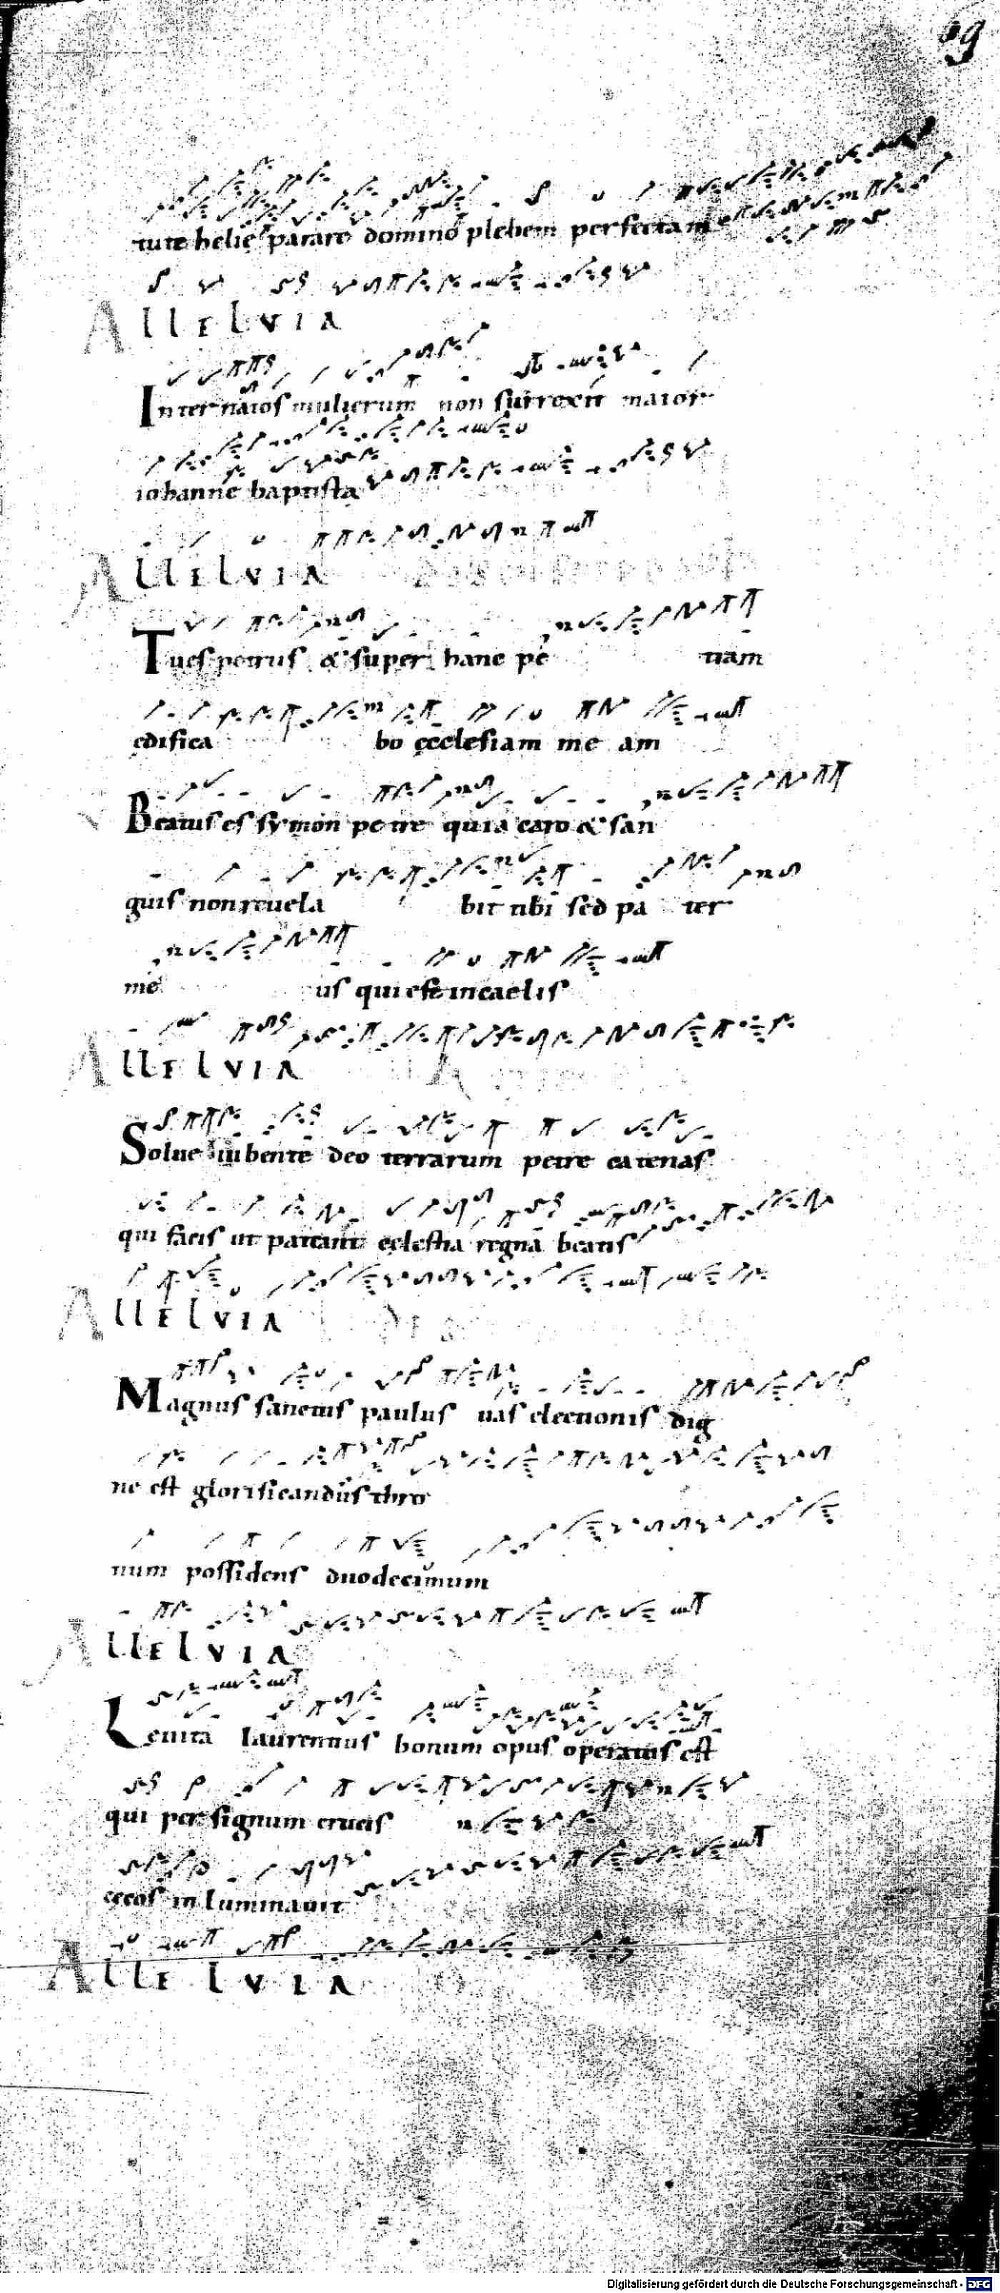 09
tute helie parare domino plebem perfectam
ALLELVIA
Inter natos mulierum non surrexit maior
iohanne baptista
ALLELVIA
Tu es petrus & super hanc pe tram
edifica bo ecclesiam me am
Beatus es symon petre quia caro & san
guis non reuela bit tibi sed pa ter
me us qui est in caelis
ALLELVIA
Solue iubente deo terrarum petre catenas
qui facis ut pateant celestia regna beatis
ALLELVIA
Magnus sanctus paulus uas electionis dig
ne est glorificandus thro
num possidens duodecimum
ALLELVIA
Leuita laurentius bonum opus operatus est
qui per signum crucis
cecos inluminauit
ALLELVIA
Digitalisierung gefördert durch die Deutsche Forschungsgemeinschaft - DFG